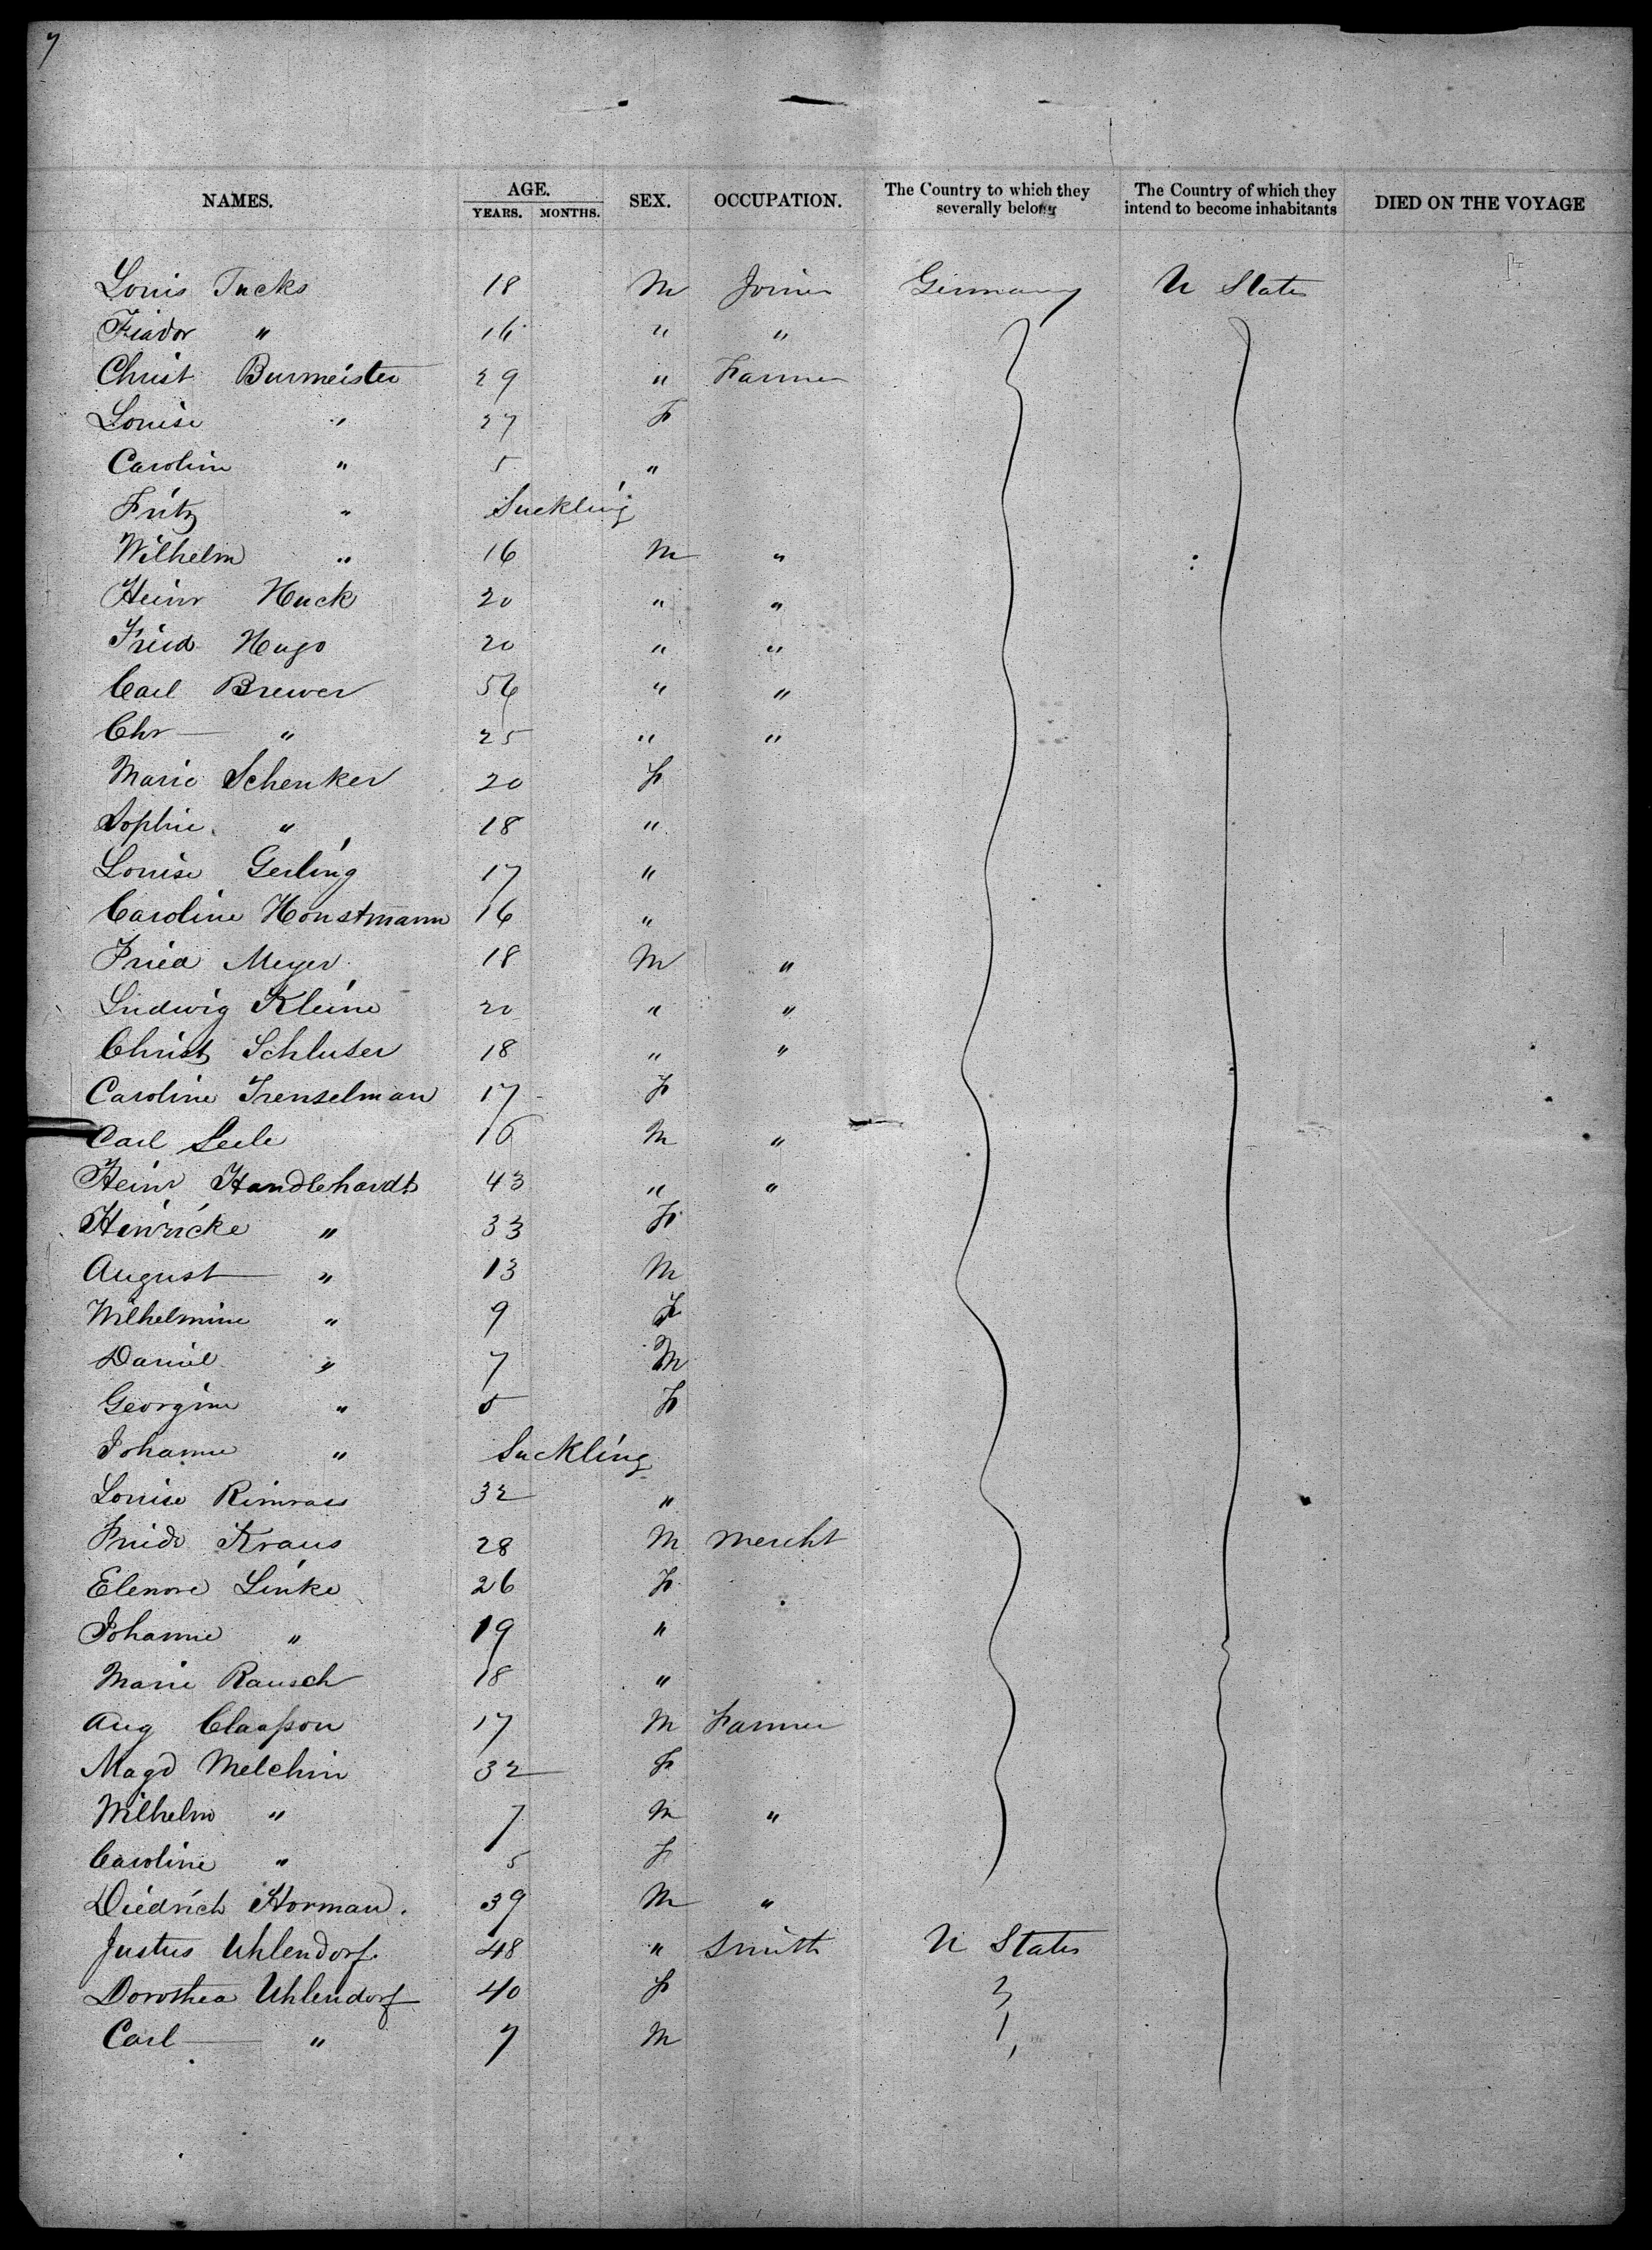 7
NAMES. AGE. YEARS. MONTHS. SEX. OCCUPATION. The Country to which they severally belong The Country of which they intend to become inhabitants DIED ON THE VOYAGE
Louis Tucks 18 M Joiner Germany U States
" 16 " "
Christ Burmeister 29 " Farmer
Louise " 27 F
Caroline " 5 "
Fritz " Suckling
Wilhelm " 16 M "
Heinr Huck 20 " "
Fried Hugo 20 " "
Carl Brewer 56 " "
Chr " 25 " "
Marie Schenker 20 F
Sophie " 18 "
Louise Gerling 17 "
Caroline Honstmann 16 "
Fried Meyer 18 M "
Ludwig Kleine 20 " "
Christ Schluter 18 " "
Caroline Trenselman 17 F
Carl 16 M "
Heinr Handlehardt 43 " "
Hinricke " 33 F
August " 13 M
Wilhelmine " 9 F
Daniel " 7 M
Georgine " 5 F
Johanne " Suckling
Louise 32 "
Fried Kraus 28 M Mercht
Elenore Linke 26 F
Johanne " 19 "
Marie Rausch 18 "
Aug Claasson 17 M Farmer
Magd Melchin 32 F
Wilhelm " 7 M "
Caroline " 5 F
Diedrich Horman. 39 M "
Justus Uhlendorf 48 " Smith U States
Dorothea Uhlendorf 40 F
Carl " 7 M